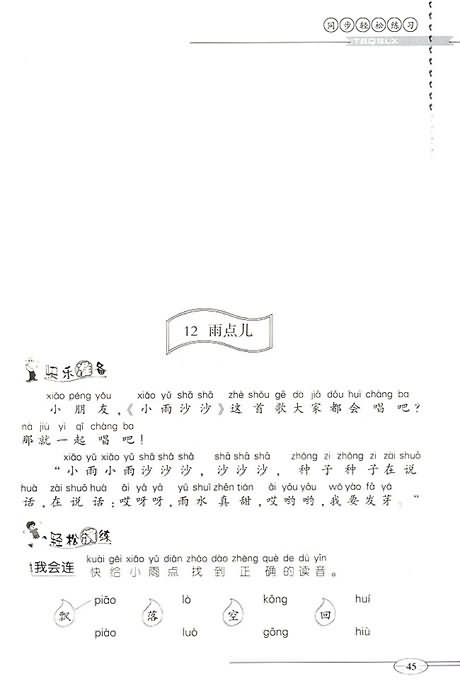 同步轻松练习
12 雨点儿
快乐准备
xiǎo péng yǒu xiǎo yǔ shā shā zhè shǒu gē dà jiā dōu huì chàng ba
小朋友，《小雨沙沙》这首歌大家都会唱吧？
nà jiù yì qǐ chàng ba
那就一起唱吧！
xiǎo yǔ xiǎo yǔ shā shā shā shā shā shā zhǒng zi zhǒng zi zài shuō
“小雨小雨沙沙沙，沙沙沙，种子种子在说
huà zài shuō huà āi yā yā yǔ shuǐ zhēn tián āi yōu yōu wǒ yào fā yá
话，在说话：哎呀呀，雨水真甜，哎哟哟，我要发芽。”
轻松训练
kuài gěi xiǎo yǔ diǎn zhǎo dào zhèng què de dú yīn
1我会连 快给小雨点找到正确的读音。
piāo lò kōng huí
飘 落 空 回
piào luò gōng hiù
45